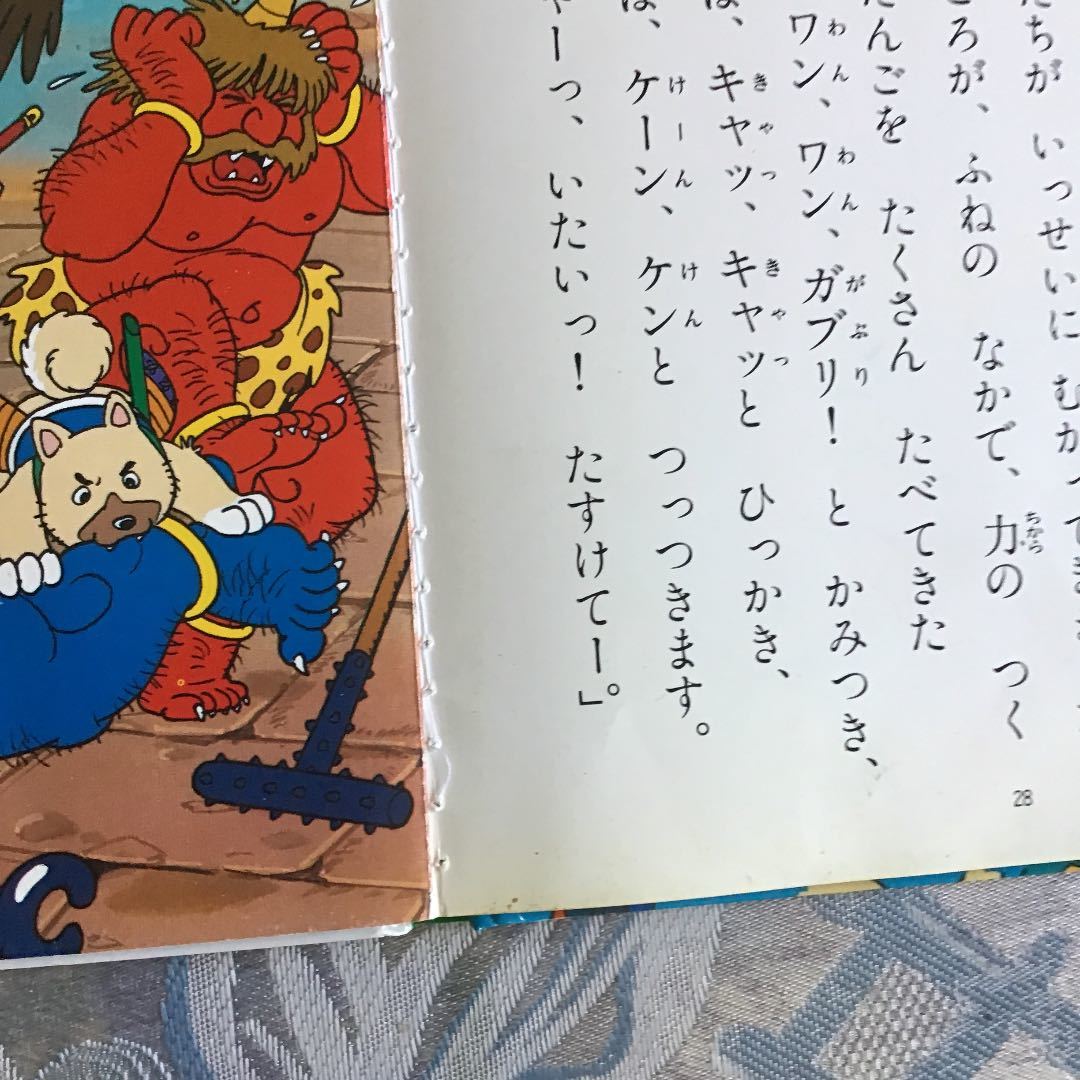 たちが いっせいに むかってきま
ころが、ふねの なかで、力の つく
だんごを たくさん たべてきた
ワン、ワン、ガブリ！ と かみつき、
は、キャッ、キャッと ひっかき、
は、ケーン、ケンと つっつきます。
ゃーっ、いたいっ！ たすけてー。」
28